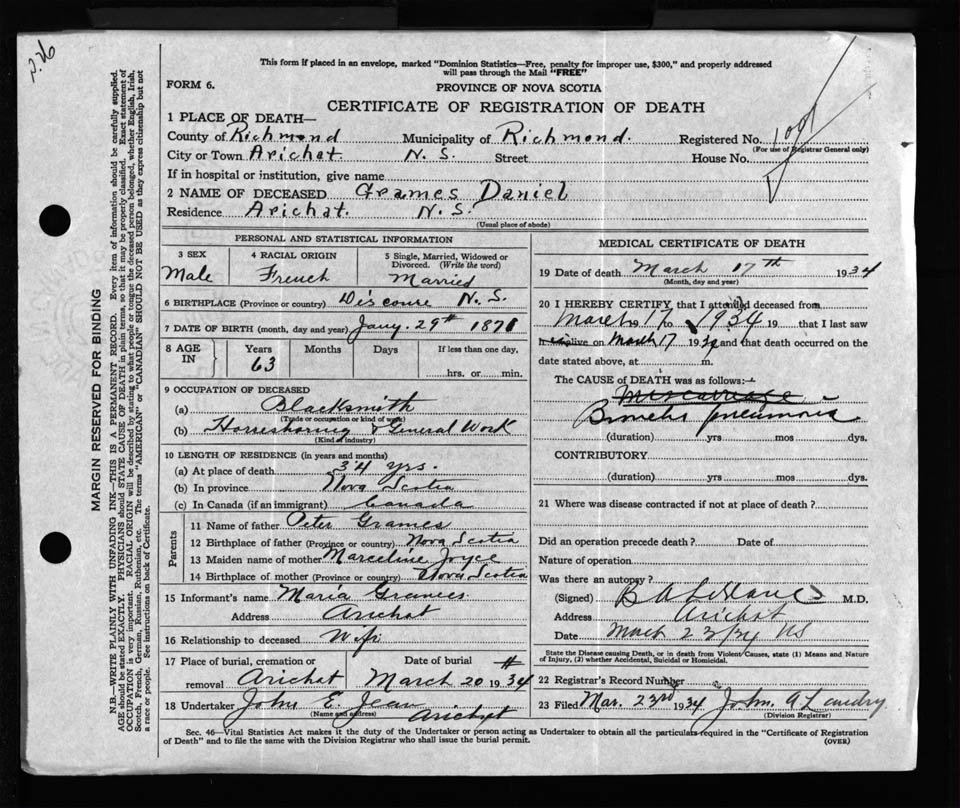 This form if placed in an envelope, marked "Dominion Statistics—Free, penalty for improper use, $300," and properly addressed
will pass through the Mail "FREE"
FORM 6.
PROVINCE OF NOVA SCOTIA
CERTIFICATE OF REGISTRATION OF DEATH
1 PLACE OF DEATH—
County of Richmond Municipality of Richmond. Registered No.
(For use of Registrar General only)
City or Town Arichat. N. S. Street House No.
If in hospital or institution, give name
2 NAME OF DECEASED Grames Daniel
Residence Arichat. N. S.
(Usual place of abode)
PERSONAL AND STATISTICAL INFORMATION
3 SEX
Male
4 RACIAL ORIGIN
French
5 Single, Married, Widowed or
Divorced. (Write the word)
Married
6 BIRTHPLACE (Province or country) N. S.
7 DATE OF BIRTH (month, day and year) Jany. 29th 1871
8 AGE IN
Years Months Days If less than one day,
63
hrs. or min.
9 OCCUPATION OF DECEASED
(a) Blacksmith
(Trade or occupation or kind of work)
(b) Horseshoeing & General Work
(Kind of industry)
10 LENGTH OF RESIDENCE (in years and months)
(a) At place of death 34 yrs.
(b) In province Nova Scotia
(c) In Canada (if an immigrant) Canada
Parents
11 Name of father Peter Grames
12 Birthplace of father (Province or country) Nova Scotia
13 Maiden name of mother Marceline Joyce
14 Birthplace of mother (Province or country) Nova Scotia
15 Informant's name Maria Grames
Address Arichat
16 Relationship to deceased Wife
17 Place of burial, cremation or
removal Arichat
Date of burial
March 20th 1934
18 Undertaker John E. Jean
(Name and address) Arichat
MEDICAL CERTIFICATE OF DEATH
19 Date of death March 17th 1934
(Month, day and year)
20 I HEREBY CERTIFY, that I attended deceased from
March 17 19 to 1934 19 that I last saw
h alive on March 17 1934 and that death occurred on the
date stated above, at m.
The CAUSE of DEATH was as follows:—
Miscarriage
Broncho pneumonia
(duration) yrs mos dys.
CONTRIBUTORY
(duration) yrs mos dys.
21 Where was disease contracted if not at place of death?
Did an operation precede death? Date of
Nature of operation
Was there an autopsy?
(Signed) M.D.
Address Arichat
Date March 23/34 NS
State the Disease causing Death, or in death from Violent Causes, state (1) Means and Nature
of Injury, (2) whether Accidental, Suicidal or Homicidal.
22 Registrar's Record Number
23 Filed Mar. 23rd 1934 John. A Landry
(Division Registrar)
Sec. 46—Vital Statistics Act makes it the duty of the Undertaker or person acting as Undertaker to obtain all the particulars required in the "Certificate of Registration
of Death" and to file the same with the Division Registrar who shall issue the burial permit.
(OVER)
MARGIN RESERVED FOR BINDING
N.B.—WRITE PLAINLY WITH UNFADING INK—THIS IS A PERMANENT RECORD. Every item of information should be carefully supplied.
AGE should be stated EXACTLY. PHYSICIANS should STATE CAUSE OF DEATH in plain terms, so that it may be properly classified. Exact statement of
OCCUPATION is very important. RACIAL ORIGIN will be described by stating to what people or tongue the deceased person belonged, whether English, Irish,
Scotch, French, German, Russian, Ruthenian, etc. The terms "AMERICAN" or "CANADIAN" SHOULD NOT BE USED as they express citizenship but not
a race or people. See instructions on back of Certificate.